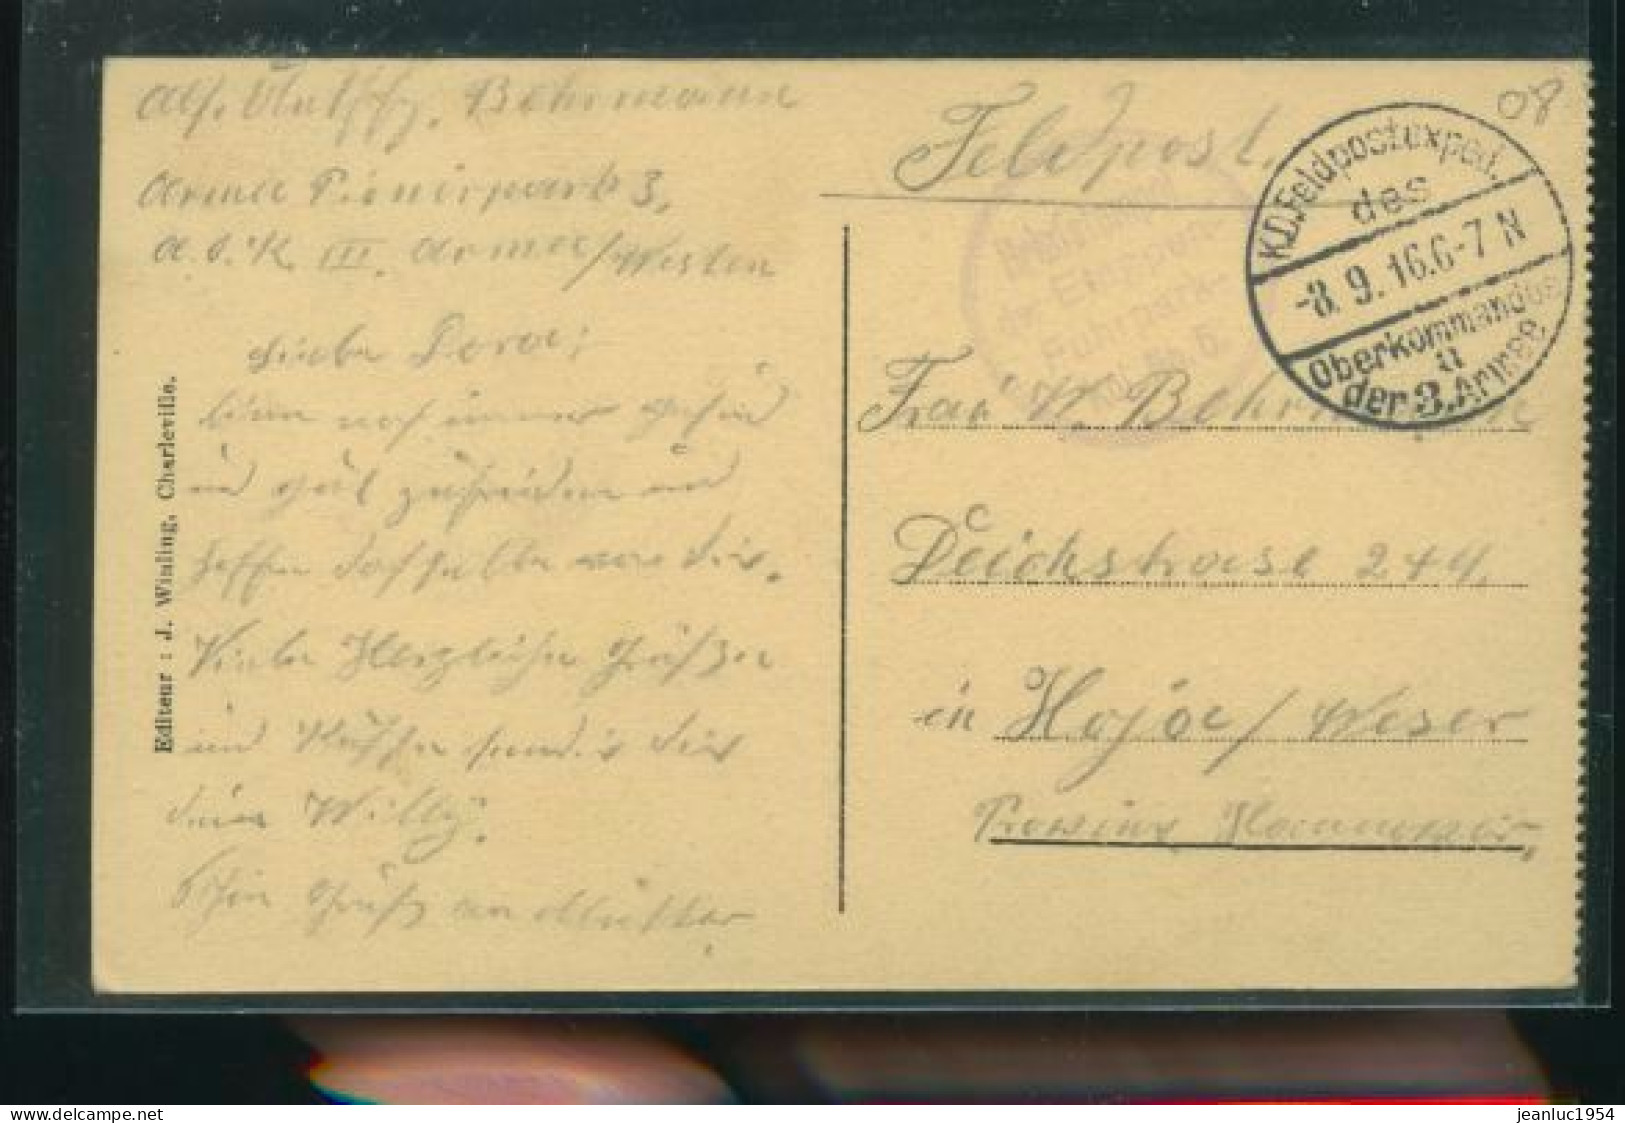 Behrmann
Armee Pionierpark 3,
A.O.K. III. Armee/Westen
Liebe Dora;
bin noch immer gesund
und gut zufrieden und
hoffe dasselbe von dir.
Viele Herzliche Grüße
und Küsse sendet dir
dein Willy.
Gruß an Mutter
Editeur : J. Winling, Charleville.
08
Feldpost.
K.D. Feldpostexped.
des
-8. 9. 16. 6-7 N
Oberkommandos
der 3. Armee
a
Fuhrpark-
No. 5
Frau W. Behrmann
Deichstrase 244,
in Hoja/Weser
Provinz Hannover,
delcampe.net
jeanluc1954